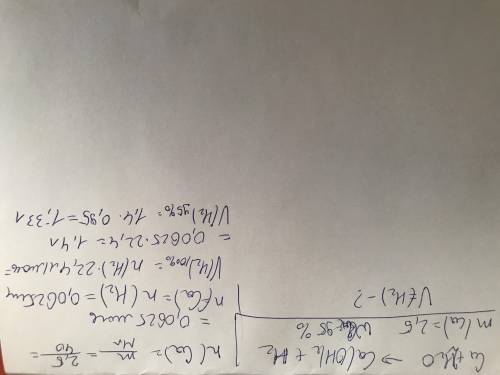 Ca + H₂O → Ca(OH)₂ + H₂
m(Ca) = 2,5
W = 95 %
V(H₂) - ?
n(Ca) = m/M = 2,5/40 =
= 0,0625 моль
n(Ca) = n(H₂) = 0,0625
V(H₂)100% = n(H₂) · 22,4 л/моль =
= 0,0625 · 22,4 = 1,4 л
V(H₂)95% = 1,4 · 0,95 = 1,33 л